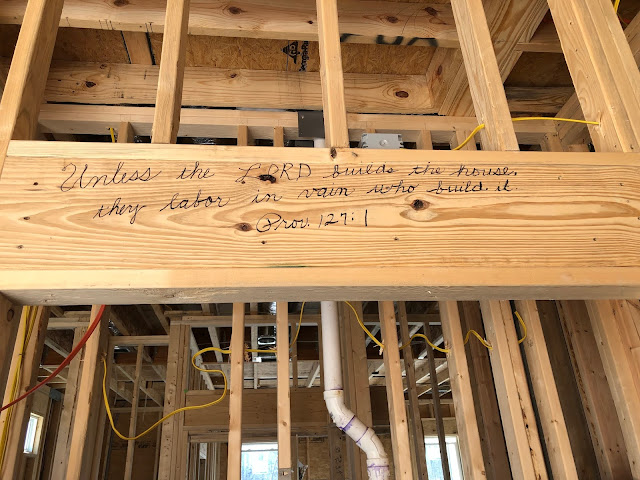 Unless the LORD builds the house,
they labor in vain who build it.
Prov. 127:1